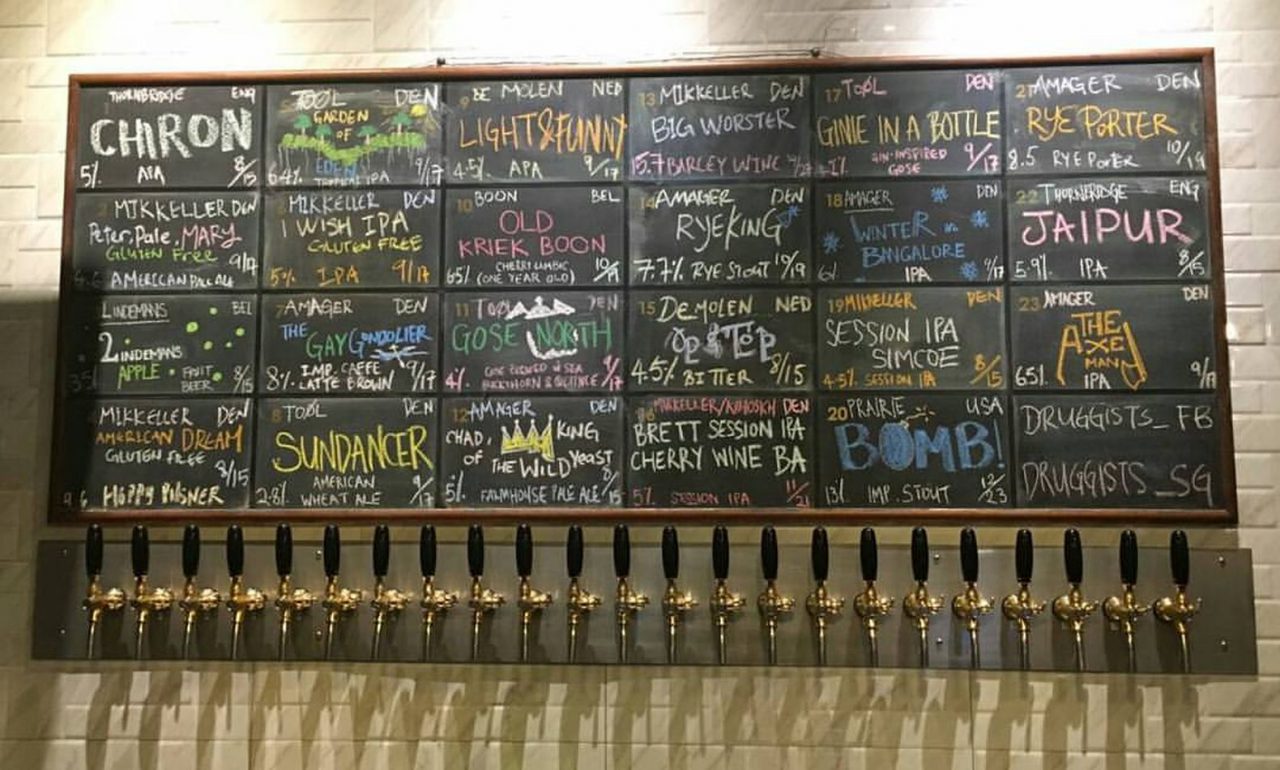 THORNBRIDGE ENG
CHIRON
5% APA 8/15
5 TOØL DEN
GARDEN
OF
EDEN
6.4% TROPICAL IPA 9/17
9 DE MOLEN NED
LIGHT & FUNNY
4.5% APA 9/17
13 MIKKELLER DEN
BIG WORSTER
15.7 BARLEY WINE
17 TOØL DEN
GINIE IN A BOTTLE
GIN-INSPIRED
GOSE 9/17
21 AMAGER DEN
RYE PORTER
8.5 RYE PORTER 10/19
2 MIKKELLER DEN
Peter, Pale, MARY
GLUTEN FREE 9/17
4.6 AMERICAN PALE ALE
6 MIKKELLER DEN
I WISH IPA
GLUTEN FREE
5% IPA 9/17
10 BOON BEL
OLD
KRIEK BOON
CHERRY LAMBIC
65% (ONE YEAR OLD)
14 AMAGER DEN
RYEKING
7.7% RYE STOUT 10/19
18 AMAGER DEN
WINTER IN
BANGALORE
6% IPA 9/17
22 THORNBRIDGE ENG
JAIPUR
5.9% IPA 8/15
LINDEMANS BEL
2 LINDEMANS
APPLE • FRUIT
BEER
3.5 8/15
7 AMAGER DEN
THE
GAY GONDOLIER
IMP. CAFFE
8% LATTE BROWN 9/17
11 TOØL DEN
GOSE NORTH
4% GOSE BREWED W SEA
BUCKTHORN & QUINCE 9/17
15 DE MOLEN NED
OP & TOP
4.5% BITTER 8/15
19 MIKKELLER DEN
SESSION IPA
SIMCOE
4.5% SESSION IPA 8/15
23 AMAGER DEN
THE
AXE
MAN
65% IPA 9/17
4 MIKKELLER DEN
AMERICAN DREAM
GLUTEN FREE
8/15
4.6 HOPPY PILSNER
8 TOØL DEN
SUNDANCER
AMERICAN
2.8% WHEAT ALE 9/17
12 AMAGER DEN
CHAD, KING
OF THE WILD YEAST
5% FARMHOUSE PALE ALE 8/15
16 MIKKELLER/ DEN
BRETT SESSION IPA
CHERRY WINE BA
5% SESSION IPA 11/21
20 PRAIRIE USA
BOMB!
13% IMP. STOUT 12/23
DRUGGISTS_FB
DRUGGISTS_SG